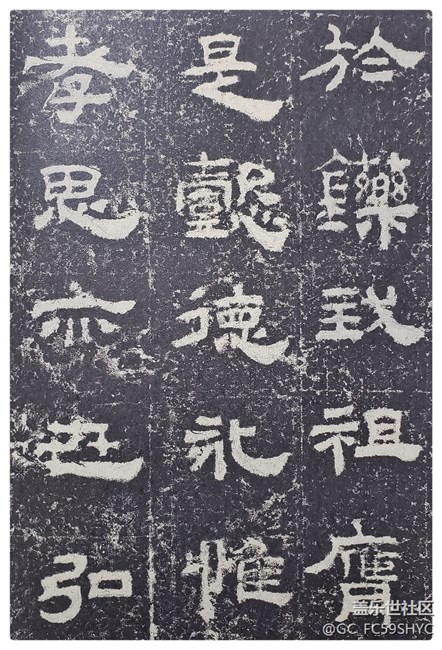 於鑠我祖膺
是懿德永惟
孝思亦世弘
盖乐世社区
@GC_FC59SHYC